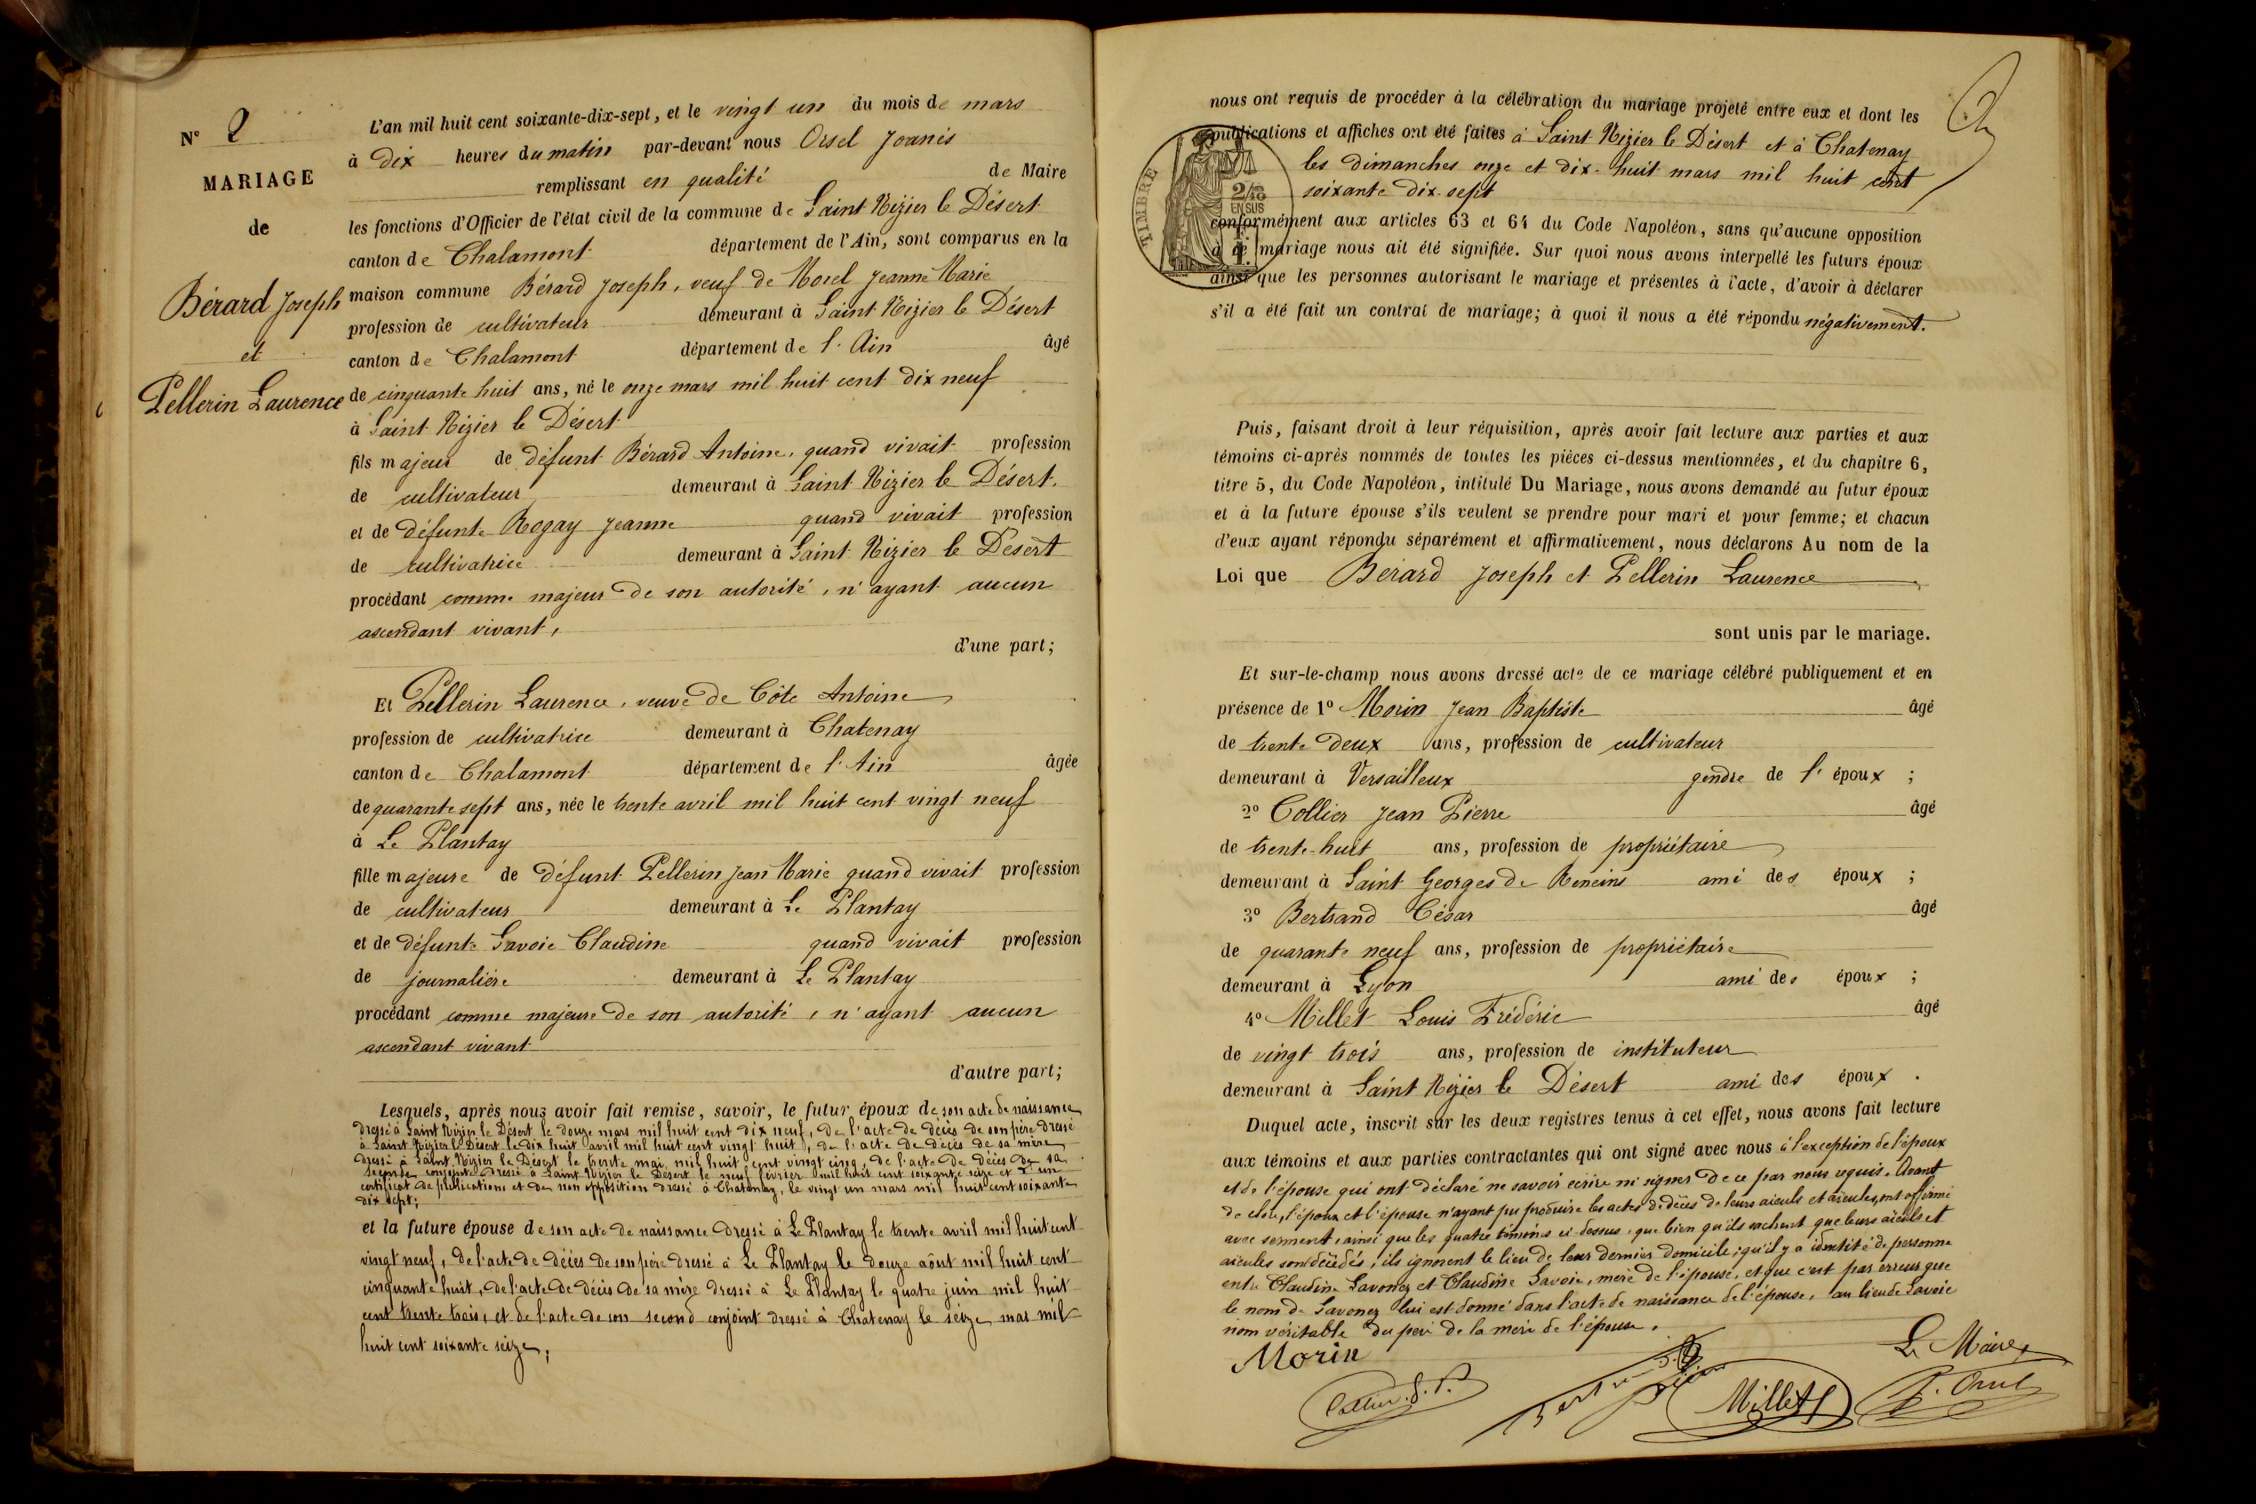 N° 2
MARIAGE
de
Bérard Joseph
et
Pellerin Laurence
L'an mil huit cent soixante-dix-sept, et le vingt un du mois de mars
à dix heures du matin par-devant nous Orsel Joanès
remplissant en qualité de Maire
les fonctions d'Officier de l'état civil de la commune de Saint Nizier le Désert
canton de Chalamont département de l'Ain, sont comparus en la
maison commune Bérard Joseph, veuf de Morel Jeanne Marie
profession de cultivateur demeurant à Saint Nizier le Désert
canton de Chalamont département de l'Ain âgé
de cinquante huit ans, né le onze mars mil huit cent dix neuf
à Saint Nizier le Désert
fils majeur de défunt Bérard Antoine, quand vivait profession
de cultivateur demeurant à Saint Nizier le Désert.
et de défunte Rogay Jeanne quand vivait profession
de cultivatrice demeurant à Saint Nizier le Désert
procédant comme majeur de son autorité, n'ayant aucun
ascendant vivant,
d'une part;
Et Pellerin Laurence, veuve de Côte Antoine
profession de cultivatrice demeurant à Chatenay
canton de Chalamont département de l'Ain âgée
de quarante sept ans, née le trente avril mil huit cent vingt neuf
à Le Plantay
fille majeure de défunt Pellerin Jean Marie quand vivait profession
de cultivateur demeurant à Le Plantay
et de défunte Savoie Claudine quand vivait profession
de journalière demeurant à Le Plantay
procédant comme majeure de son autorité, n'ayant aucun
ascendant vivant
d'autre part;
Lesquels, après nous avoir fait remise, savoir, le futur époux de son acte de naissance
dressé à Saint Nizier le Désert le douze mars mil huit cent dix neuf, de l'acte de décès de son père dressé
à Saint Nizier le Désert le dix huit avril mil huit cent vingt huit, de l'acte de décès de sa mère
dressé à Saint Nizier le Désert le trente mai mil huit cent vingt cinq, de l'acte de décès de sa
seconde conjointe dressé à Saint Nizier le Désert le neuf février mil huit cent soixante seize et d'un
certificat de publications et de non opposition dressé à Chatenay, le vingt un mars mil huit cent soixante
dix sept;
et la future épouse de son acte de naissance dressé à Le Plantay le trente avril mil huit cent
vingt neuf, de l'acte de décès de son père dressé à Le Plantay le douze août mil huit cent
cinquante huit, de l'acte de décès de sa mère dressé à Le Plantay le quatre juin mil huit
cent trente trois, et de l'acte de son second conjoint dressé à Chatenay le seize mai mil
huit cent soixante seize;
nous ont requis de procéder à la célébration du mariage projeté entre eux et dont les
publications et affiches ont été faites à Saint Nizier le Désert et à Chatenay
les dimanches onze et dix-huit mars mil huit cent
soixante dix-sept
TIMBRE
2/10
EN SUS
conformément aux articles 63 et 64 du Code Napoléon, sans qu'aucune opposition
à ce mariage nous ait été signifiée. Sur quoi nous avons interpellé les futurs époux
ainsi que les personnes autorisant le mariage et présentes à l'acte, d'avoir à déclarer
s'il a été fait un contrat de mariage; à quoi il nous a été répondu négativement.
Puis, faisant droit à leur réquisition, après avoir fait lecture aux parties et aux
témoins ci-après nommés de toutes les pièces ci-dessus mentionnées, et du chapitre 6,
titre 5, du Code Napoléon, intitulé Du Mariage, nous avons demandé au futur époux
et à la future épouse s'ils veulent se prendre pour mari et pour femme; et chacun
d'eux ayant répondu séparément et affirmativement, nous déclarons Au nom de la
Loi que Bérard Joseph et Pellerin Laurence
sont unis par le mariage.
Et sur-le-champ nous avons dressé acte de ce mariage célébré publiquement et en
présence de 1° Morin Jean Baptiste âgé
de trente deux ans, profession de cultivateur
demeurant à Versailleux gendre de l'époux ;
2° Collier Jean Pierre âgé
de trente-huit ans, profession de propriétaire
demeurant à Saint Georges de Reneins ami des époux ;
3° Bertrand César âgé
de quarante neuf ans, profession de propriétaire
demeurant à Lyon ami des époux ;
4° Millet Louis Frédéric âgé
de vingt trois ans, profession de instituteur
demeurant à Saint Nizier le Désert ami des époux .
Duquel acte, inscrit sur les deux registres tenus à cet effet, nous avons fait lecture
aux témoins et aux parties contractantes qui ont signé avec nous à l'exception de l'époux
et de l'épouse qui ont déclaré ne savoir écrire ni signer de ce par nous requis. Avant
de clore, l'époux et l'épouse n'ayant pu produire les actes de décès de leurs aïeuls et aïeules, ont affirmé
avec serment, ainsi que les quatre témoins ci-dessus, que bien qu'ils sachent que leurs aïeuls et
aïeules sont décédés, ils ignorent le lieu de leur dernier domicile; qu'il y a identité de personne
entre Claudine Savonez et Claudine Savoie, mère de l'épouse, et que c'est par erreur que
le nom de Savonez lui est donné dans l'acte de naissance de l'épouse, au lieu de Savoie
nom véritable du père de la mère de l'épouse.
Morin
Le Maire
Collier J. P.
Millet
J. Orsel